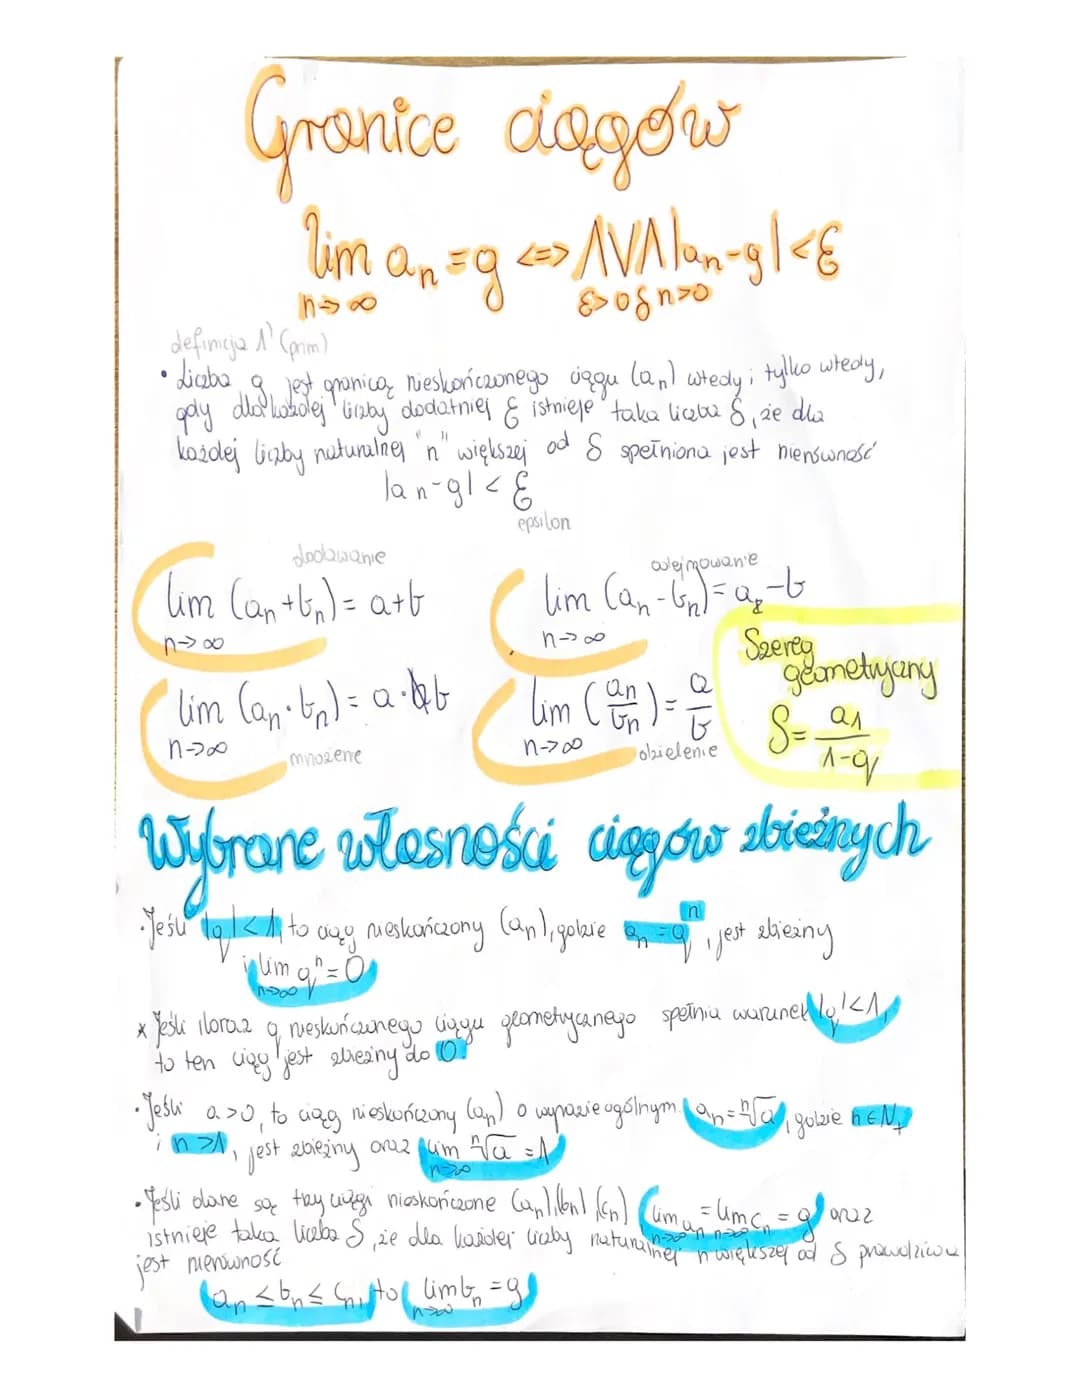 Granice ciągów
lim aₙ = g <=> ΛVΛ |aₙ-g| < ε
n→∞ ε>0 δ n>0
definicja 1' (prim)
• Liczba g jest granicą nieskończonego ciągu (aₙ) wtedy i tylko wtedy,
gdy dla każdej liczby dodatniej ε istnieje taka liczba δ, że dla
każdej liczby naturalnej "n" większej od δ spełniona jest nierówność
|aₙ-g| < ε
epsilon
dodawanie
lim (aₙ+bₙ) = a+b
n→∞
odejmowanie
lim (aₙ-bₙ) = a-b
n→∞
lim (aₙ·bₙ) = a·b
n→∞
mnożenie
lim (aₙ/bₙ) = a/b
n→∞
dzielenie
Szereg
geometryczny
S = a₁/1-q
Wybrane własności ciągów zbieżnych
• Jeśli |q|<1, to ciąg nieskończony (aₙ), gdzie aₙ = qⁿ, jest zbieżny
i lim qⁿ = 0
n→∞
x Jeśli iloraz q nieskończonego ciągu geometrycznego spełnia warunek |q|<1,
to ten ciąg jest zbieżny do 0.
• Jeśli a>0, to ciąg nieskończony (aₙ) o wyrazie ogólnym aₙ = ⁿ√a, gdzie n∈N₊
i n>1, jest zbieżny oraz lim ⁿ√a = 1
n→∞
• Jeśli dane są trzy ciągi nieskończone (aₙ),(bₙ),(cₙ) lim aₙ = lim cₙ = g oraz
n→∞ n→∞
istnieje taka liczba δ, że dla każdej liczby naturalnej n większej od δ prawdziwa
jest nierówność
aₙ ≤ bₙ ≤ cₙ, to lim bₙ = g
n→∞